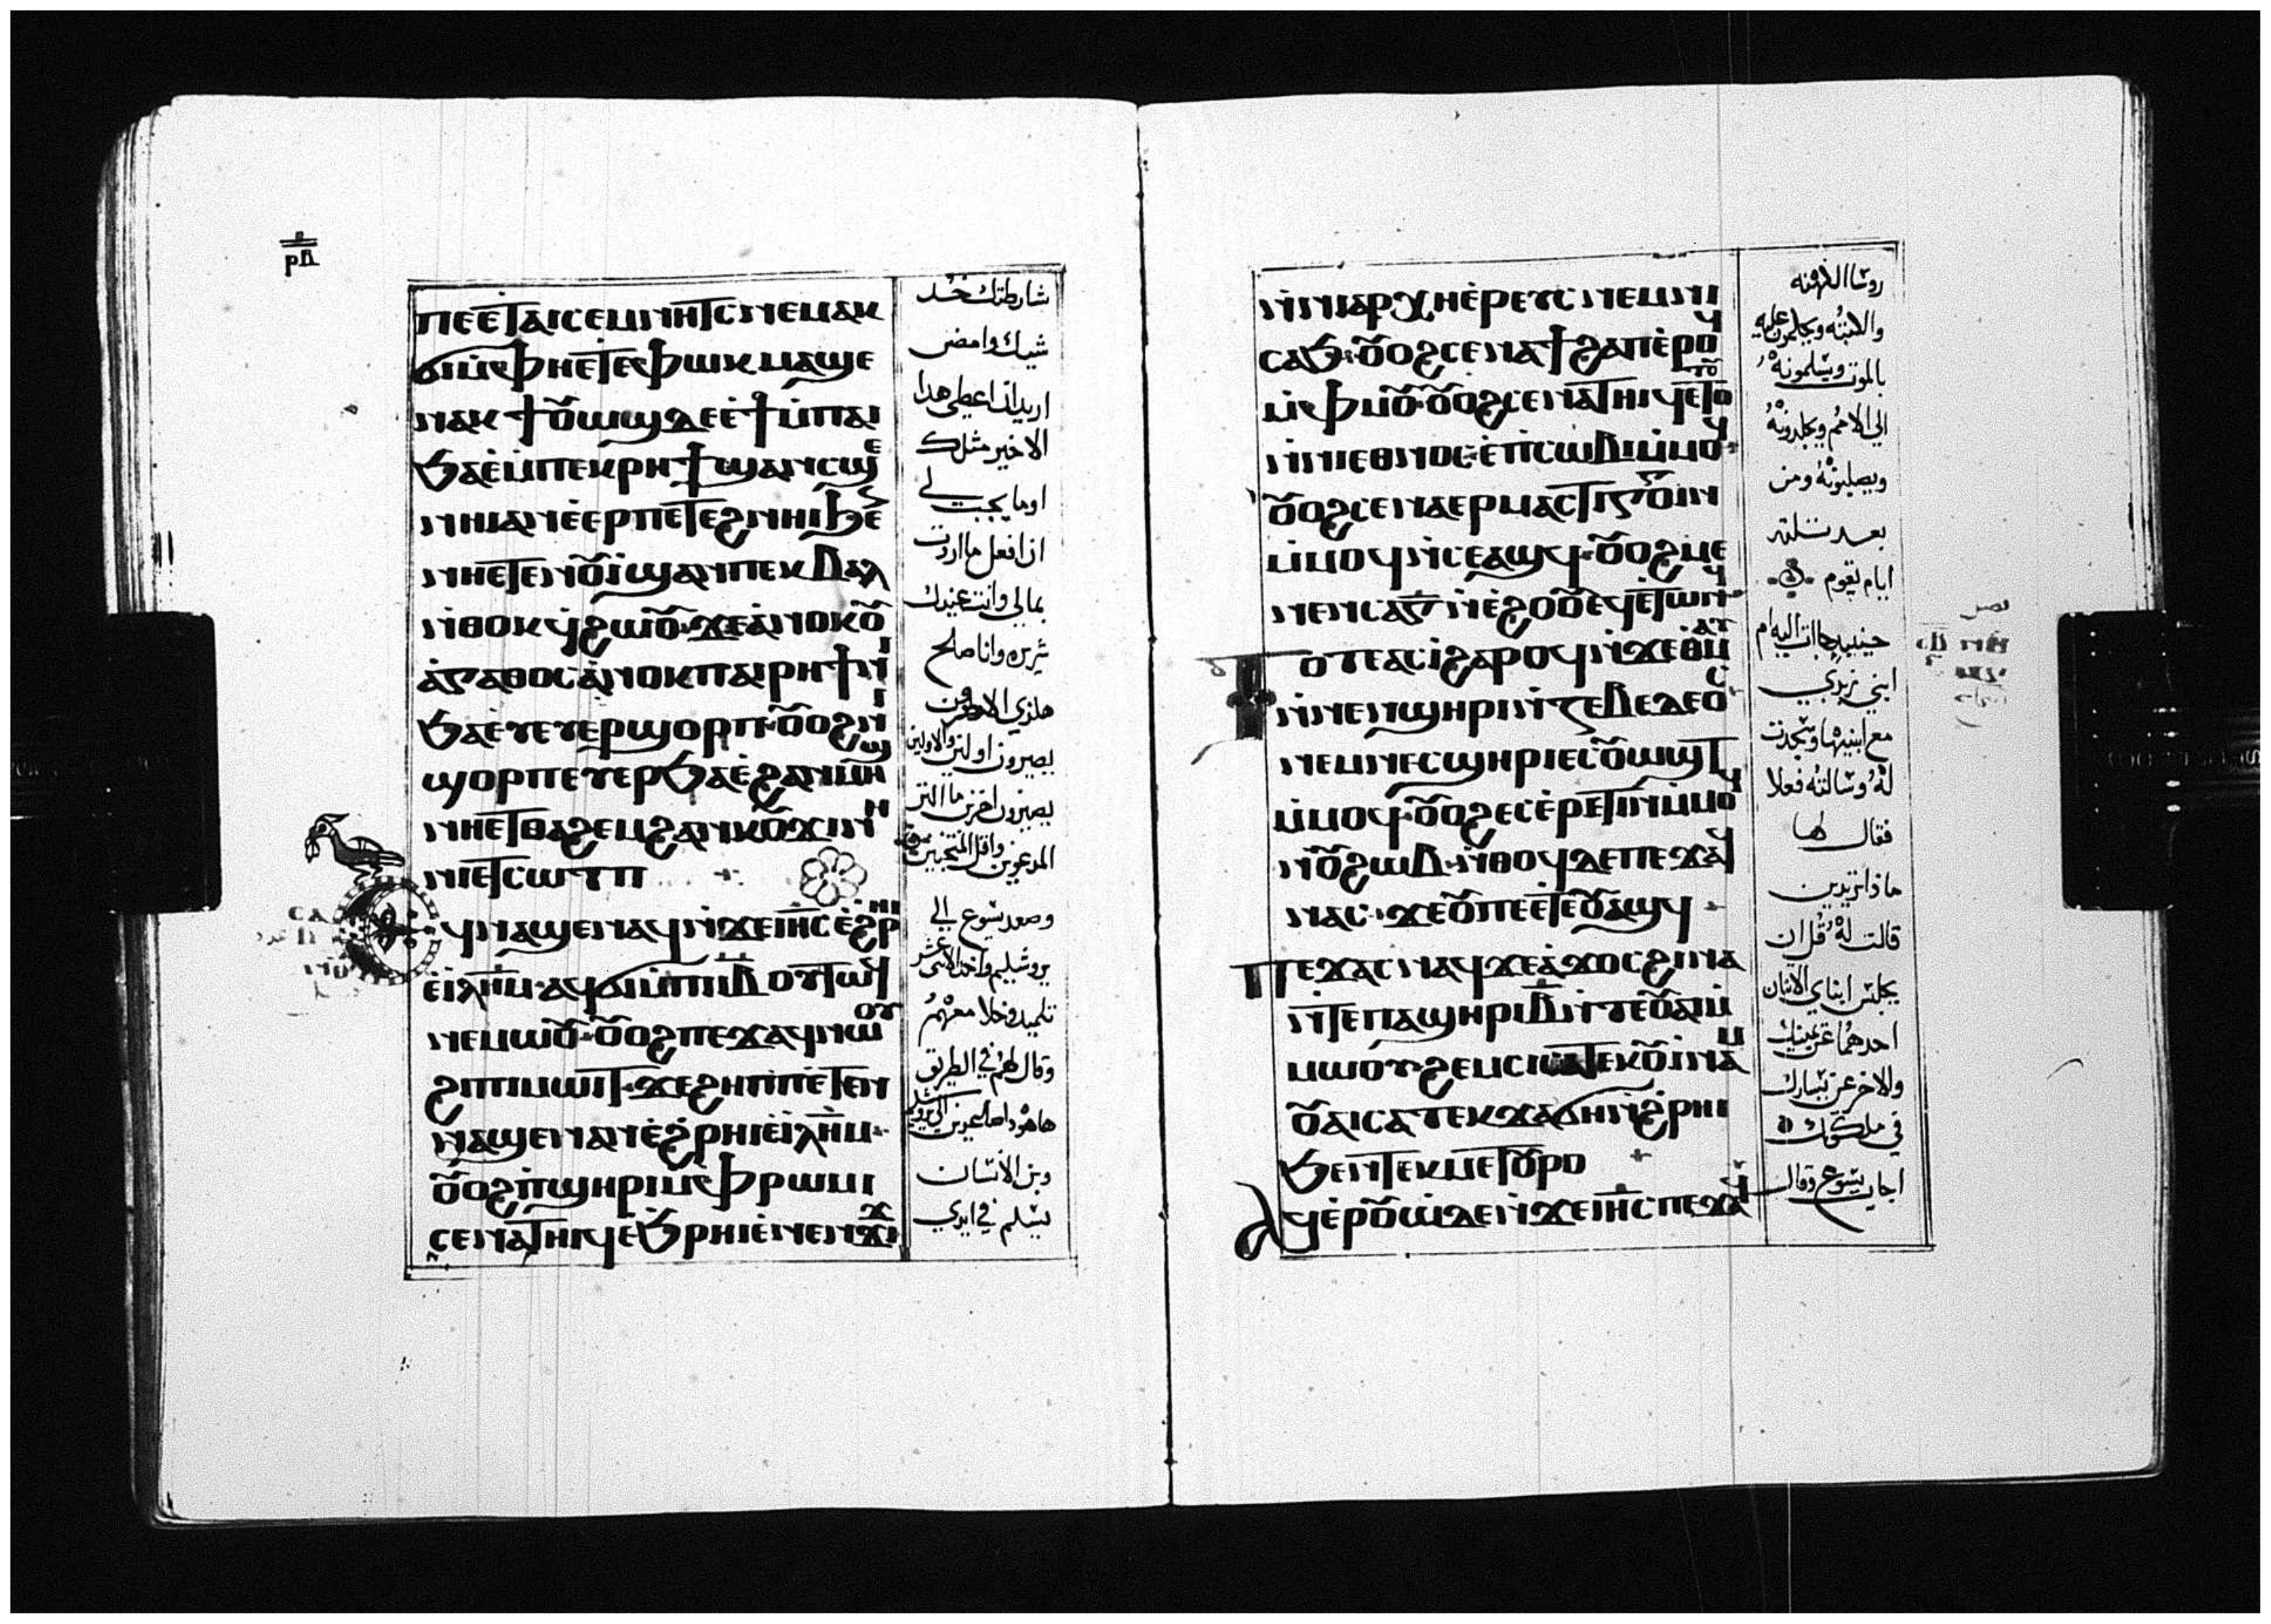 ⲣⲇ
ⲡⲉ ⲉⲧⲁⲓⲥⲉⲙⲛⲏⲧⲥ ⲛⲉⲙⲁⲕ
ϭⲓ ⲙ̀ⲫⲏⲉⲧⲉⲫⲱⲕ ⲙⲁϣⲉ
ⲛⲁⲕ ϯⲟⲩⲱϣ ⲇⲉ ⲉ̀ϯ ⲙ̀ⲡⲁⲓ
ϧⲁⲉ̀ ⲙ̀ⲡⲉⲕⲣⲏϯ ϣⲁⲛ ⲥϣⲉ
ⲛⲏⲓ ⲁⲛ ⲉ̀ⲉⲣ ⲡⲉⲧⲉϩⲛⲏⲓ ϧⲉ
ⲛⲏⲉⲧⲉⲛⲟⲩⲓ̀ ϣⲁⲛ ⲡⲉⲕⲃⲁⲗ
ⲛ̀ⲑⲟⲕ ϥ̀ϩⲱⲟⲩ· ϫⲉ ⲁ̀ⲛⲟⲕ ⲟⲩ
ⲁ̀ⲅⲁⲑⲟⲥ ⲁ̀ⲛⲟⲕ ⲡⲁⲓⲣⲏϯ ⲛⲓ
ϧⲁⲉ̀ⲩ ⲉⲩⲉⲣϣⲟⲣⲡ· ⲟⲩⲟϩ ⲛⲓ
ϣⲟⲣⲡ ⲉⲩⲉⲣϧⲁⲉ̀ ϩⲁⲛⲙⲏϣ
ⲛⲏⲉⲧⲑⲁϩⲉⲙ ϩⲁⲛⲕⲟⲩϫⲓ ⲛⲏ
ⲛⲓⲉⲧⲥⲱⲧⲡ
ϥⲛⲁϣⲉⲛⲁϥ ⲛ̀ϫⲉ ⲓⲏⲥ ⲉ̀ϩⲣⲏⲓ
ⲉ̀ⲓⲗⲏⲙ· ⲁϥϭⲓ ⲙ̀ⲡⲓⲓⲃ ⲟⲩⲧⲱϥ
ⲛⲉⲙⲱⲟⲩ· ⲟⲩⲟϩ ⲡⲉϫⲁϥ ⲛⲱⲟⲩ
ϩⲓ ⲡⲓⲙⲱⲓⲧ· ϫⲉ ϩⲏⲡⲡⲉ ⲧⲉⲛ
ⲛⲁϣⲉⲛⲁⲛ ⲉ̀ϩⲣⲏⲓ ⲉ̀ⲓⲗⲏⲙ·
ⲟⲩⲟϩ ⲡ̀ϣⲏⲣⲓ ⲙ̀ⲫⲣⲱⲙⲓ
ⲥⲉⲛⲁⲧⲏⲓϥ ⲉ̀ϧⲣⲏⲓ ⲉ̀ⲛⲉⲛϫⲓϫ
شارطتك خد
شيك وامض
اريد ان اعطي هدا
الاخير مثلك
اوما يجب لي
ان افعل ما اردت
بمالي وانت عينك
شريره وانا صالح
هلذي الاخرون
يصيرون اولين والاولين
يصيرون اخرين ما اكثر
المدعوين واقل المنتخبين
وصعد يشوع الي
يروشليم واخد الاثني عشر
تلميد وخلا معهم
وقال لهم في الطريق
هاهودا صاعدين الي يروشليم
وبن الانسان
يسلم في ايدي
ⲛ̀ⲛⲓⲁⲣⲭⲏⲉ̀ⲣⲉⲩⲥ ⲛⲉⲙ ⲛⲓ
ⲥⲁϧ· ⲟⲩⲟϩ ⲥⲉⲛⲁϯϩⲁⲡ ⲉ̀ⲣⲟϥ
ⲙ̀ⲫⲙⲟⲩ· ⲟⲩⲟϩ ⲥⲉⲛⲁⲧⲏⲓϥ ⲉ̀ⲧⲟⲧⲟⲩ
ⲛ̀ⲛⲓⲉⲑⲛⲟⲥ· ⲉ̀ⲡⲥⲱⲃⲓ ⲙ̀ⲙⲟϥ
ⲟⲩⲟϩ ⲥⲉⲛⲁⲉⲣⲙⲁⲥⲧⲓⲅⲅⲟⲓⲛ
ⲙ̀ⲙⲟϥ ⲛ̀ⲥⲉⲁϣϥ· ⲟⲩⲟϩ ⲙⲉ
ⲛⲉⲛⲥⲁ ⲅ̅ ⲛ̀ⲉ̀ϩⲟⲟⲩ ⲉϥⲉ̀ⲧⲱⲛϥ
ⲧⲟⲧⲉ ⲁⲥⲓ̀ ϩⲁⲣⲟϥ ⲛ̀ϫⲉ ⲑⲙⲁⲩ
ⲛ̀ⲛⲉⲛϣⲏⲣⲓ ⲛ̀ⲍⲉⲃⲉⲇⲉⲟⲥ
ⲛⲉⲙ ⲛⲉⲥϣⲏⲣⲓ ⲉⲥⲟⲩⲱϣⲧ
ⲙ̀ⲙⲟϥ· ⲟⲩⲟϩ ⲉⲥⲉ̀ⲣⲉⲧⲓⲛ ⲙ̀ⲙⲟϥ
ⲛ̀ⲟⲩϩⲱⲃ· ⲛ̀ⲑⲟϥ ⲇⲉ ⲡⲉϫⲁϥ
ⲛⲁⲥ· ϫⲉ ⲟⲩ ⲡⲉ ⲉ̀ⲧⲉⲟⲩⲁϣϥ
ⲡⲉϫⲁⲥ ⲛⲁϥ ϫⲉ ⲁ̀ϫⲟⲥ ϩⲓⲛⲁ
ⲛ̀ⲧⲉ ⲡⲁϣⲏⲣⲓ ⲃ̅ ⲛ̀ⲧⲉ ⲟⲩⲁⲓ ⲙ̀
ⲙⲱⲟⲩ ϩⲉⲙⲥⲓ ⲥⲁⲧⲉⲕⲟⲩⲓ̀ⲛⲁⲙ
ⲟⲩⲁⲓ ⲥⲁⲧⲉⲕϫⲁϭⲏ ⲛ̀ϩ̀ⲣⲏⲓ
ϧⲉⲛ ⲧⲉⲕⲙⲉⲧⲟⲩⲣⲟ
ⲁϥⲉ̀ⲣⲟⲩⲱ̀ ⲇⲉ ⲛ̀ϫⲉ ⲓⲏⲥ ⲡⲉϫⲁϥ
روسا الكهنه
والكتبه ويحكمون عليه
بالموت ويسلمونه
الي الامم ويجلدونه
ويصلبونه ومن
بعد ثلثة
ايام يقوم
حينيد جاات اليه ام
ابني زبدي
مع ابنيها وسجدت
له وسالته فعلا
فقال لها
ماذا تريدين
قالت له قل ان
يجلس ابناي الاثنان
احدهما عن يمينك
والاخر عن يسارك
في ملكوتك
اجاب يشوع وقال